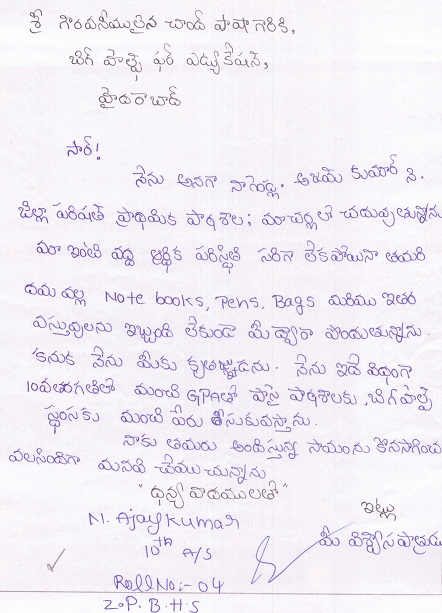 శ్రీ గౌరవనీయులైన చాంద్ పాషా గారికి,
బిగ్ హెల్ప్ ఫర్ ఎడ్యుకేషన్,
హైదరాబాద్
సార్!
నేను అనగా నాగెండ్ల. అజయ్ కుమార్ ని.
జిల్లా పరిషత్ ప్రాథమిక పాఠశాల; మాచర్లలో చదువుతున్నాను
మా ఇంటి వద్ద ఆర్థిక పరిస్థితి సరిగా లేకపోయినా తమరి
దయ వల్ల Note books, Pens, Bags మరియు ఇతర
వస్తువులను ఇబ్బంది లేకుండా మీ ద్వారా పొందుతున్నాను.
కనుక నేను మీకు కృతజ్ఞుడను. నేను ఇదే విధంగా
10వ తరగతిలో మంచి GPAతో పాసై పాఠశాలకు, బిగ్ హెల్ప్
స్థంసకు మంచి పేరు తీసుకువస్తాను.
నాకు తమరు అందిస్తున్న సాయంను కొనసాగించ
వలసిందిగా మనవి చేయుచున్నాను
"ధన్యవాదములతో"
ఇట్లు
N. Ajay Kumar
మీ విశ్వాసపాత్రుడు
10th A/S
Roll No:- 04
Z.P.B.H.S